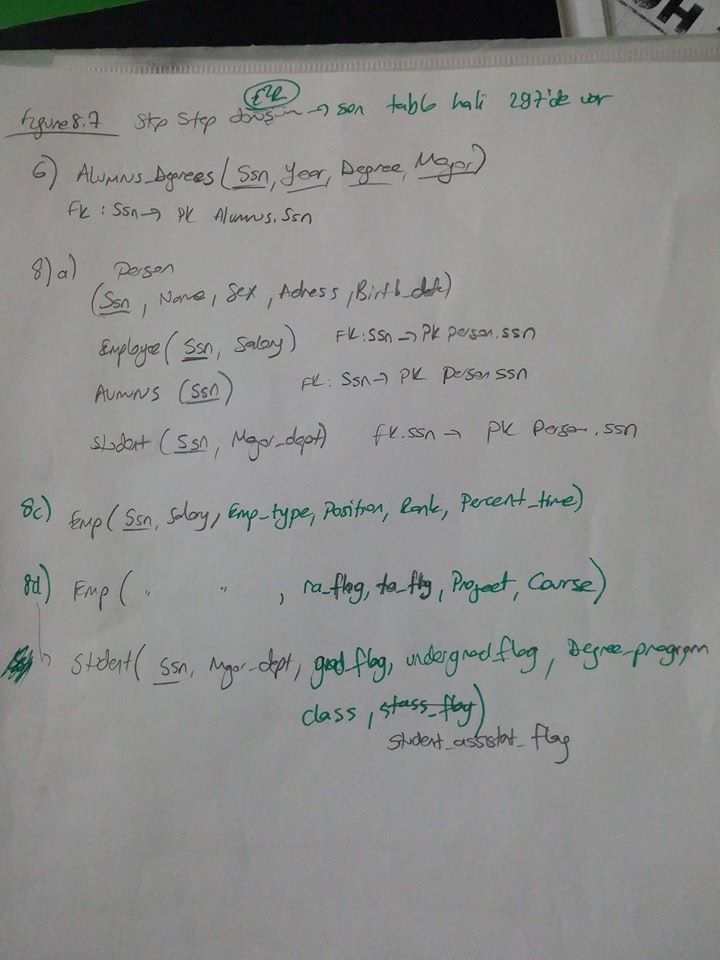 EER
Figure 8.7 Step Step dönüşüm → son tablo hali 297'de var
6) Alumnus_Degrees (Ssn, Year, Degree, Major)
FK : Ssn → PK Alumnus.Ssn
8) a) Person
(Ssn, Name, Sex, Adress, Birth_date)
Employee (Ssn, Salary) FK: SSN → PK person.ssn
Alumnus (Ssn) FK: Ssn → PK Person ssn
Student (Ssn, Major_dept) fk.ssn → PK Person.ssn
8c) Emp (Ssn, Salary, Emp_type, Position, Rank, Percent_time)
8d) Emp ( " " , ra_flag, ta_flg, Project, Course)
Student (Ssn, Major_dept, grad_flag, undergrad_flag, Degree_program
class, stass_flag)
student_assistat_flag